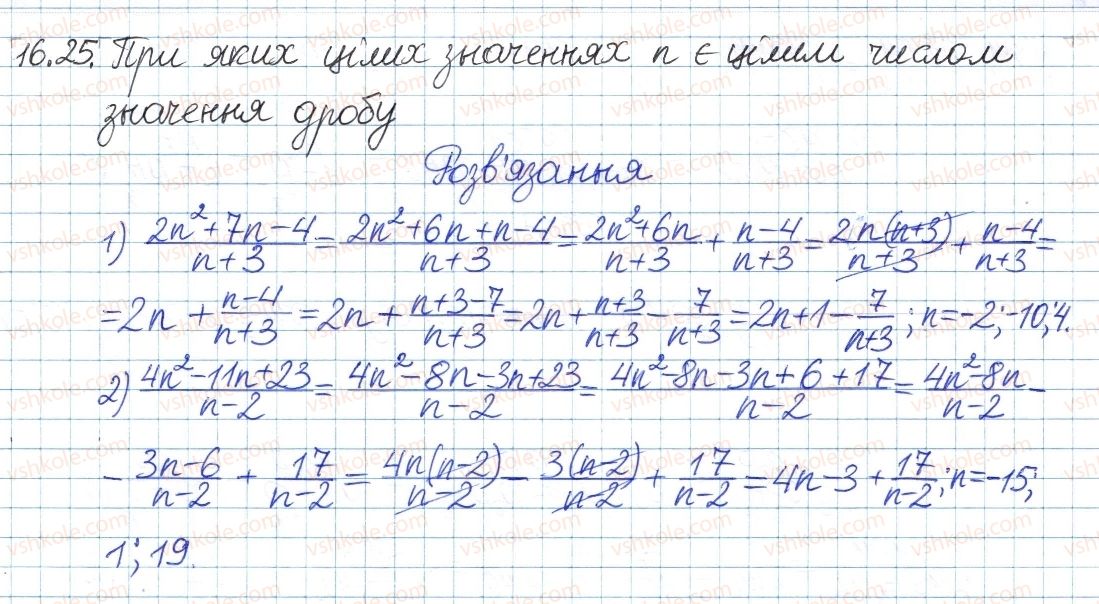 16.25. При яких цілих значеннях n є цілим числом
значення дробу
Розв'язання
1) (2n²+7n−4)/(n+3) = (2n²+6n+n−4)/(n+3) = (2n²+6n)/(n+3) + (n−4)/(n+3) = 2n(n+3)/(n+3) + (n−4)/(n+3) =
= 2n + (n−4)/(n+3) = 2n + (n+3−7)/(n+3) = 2n + (n+3)/(n+3) − 7/(n+3) = 2n+1 − 7/(n+3); n=−2; −10; 4.
2) (4n²−11n+23)/(n−2) = (4n²−8n−3n+23)/(n−2) = (4n²−8n−3n+6+17)/(n−2) = (4n²−8n)/(n−2) −
− (3n−6)/(n−2) + 17/(n−2) = 4n(n−2)/(n−2) − 3(n−2)/(n−2) + 17/(n−2) = 4n−3 + 17/(n−2); n=−15;
1; 19.
vshkole.com